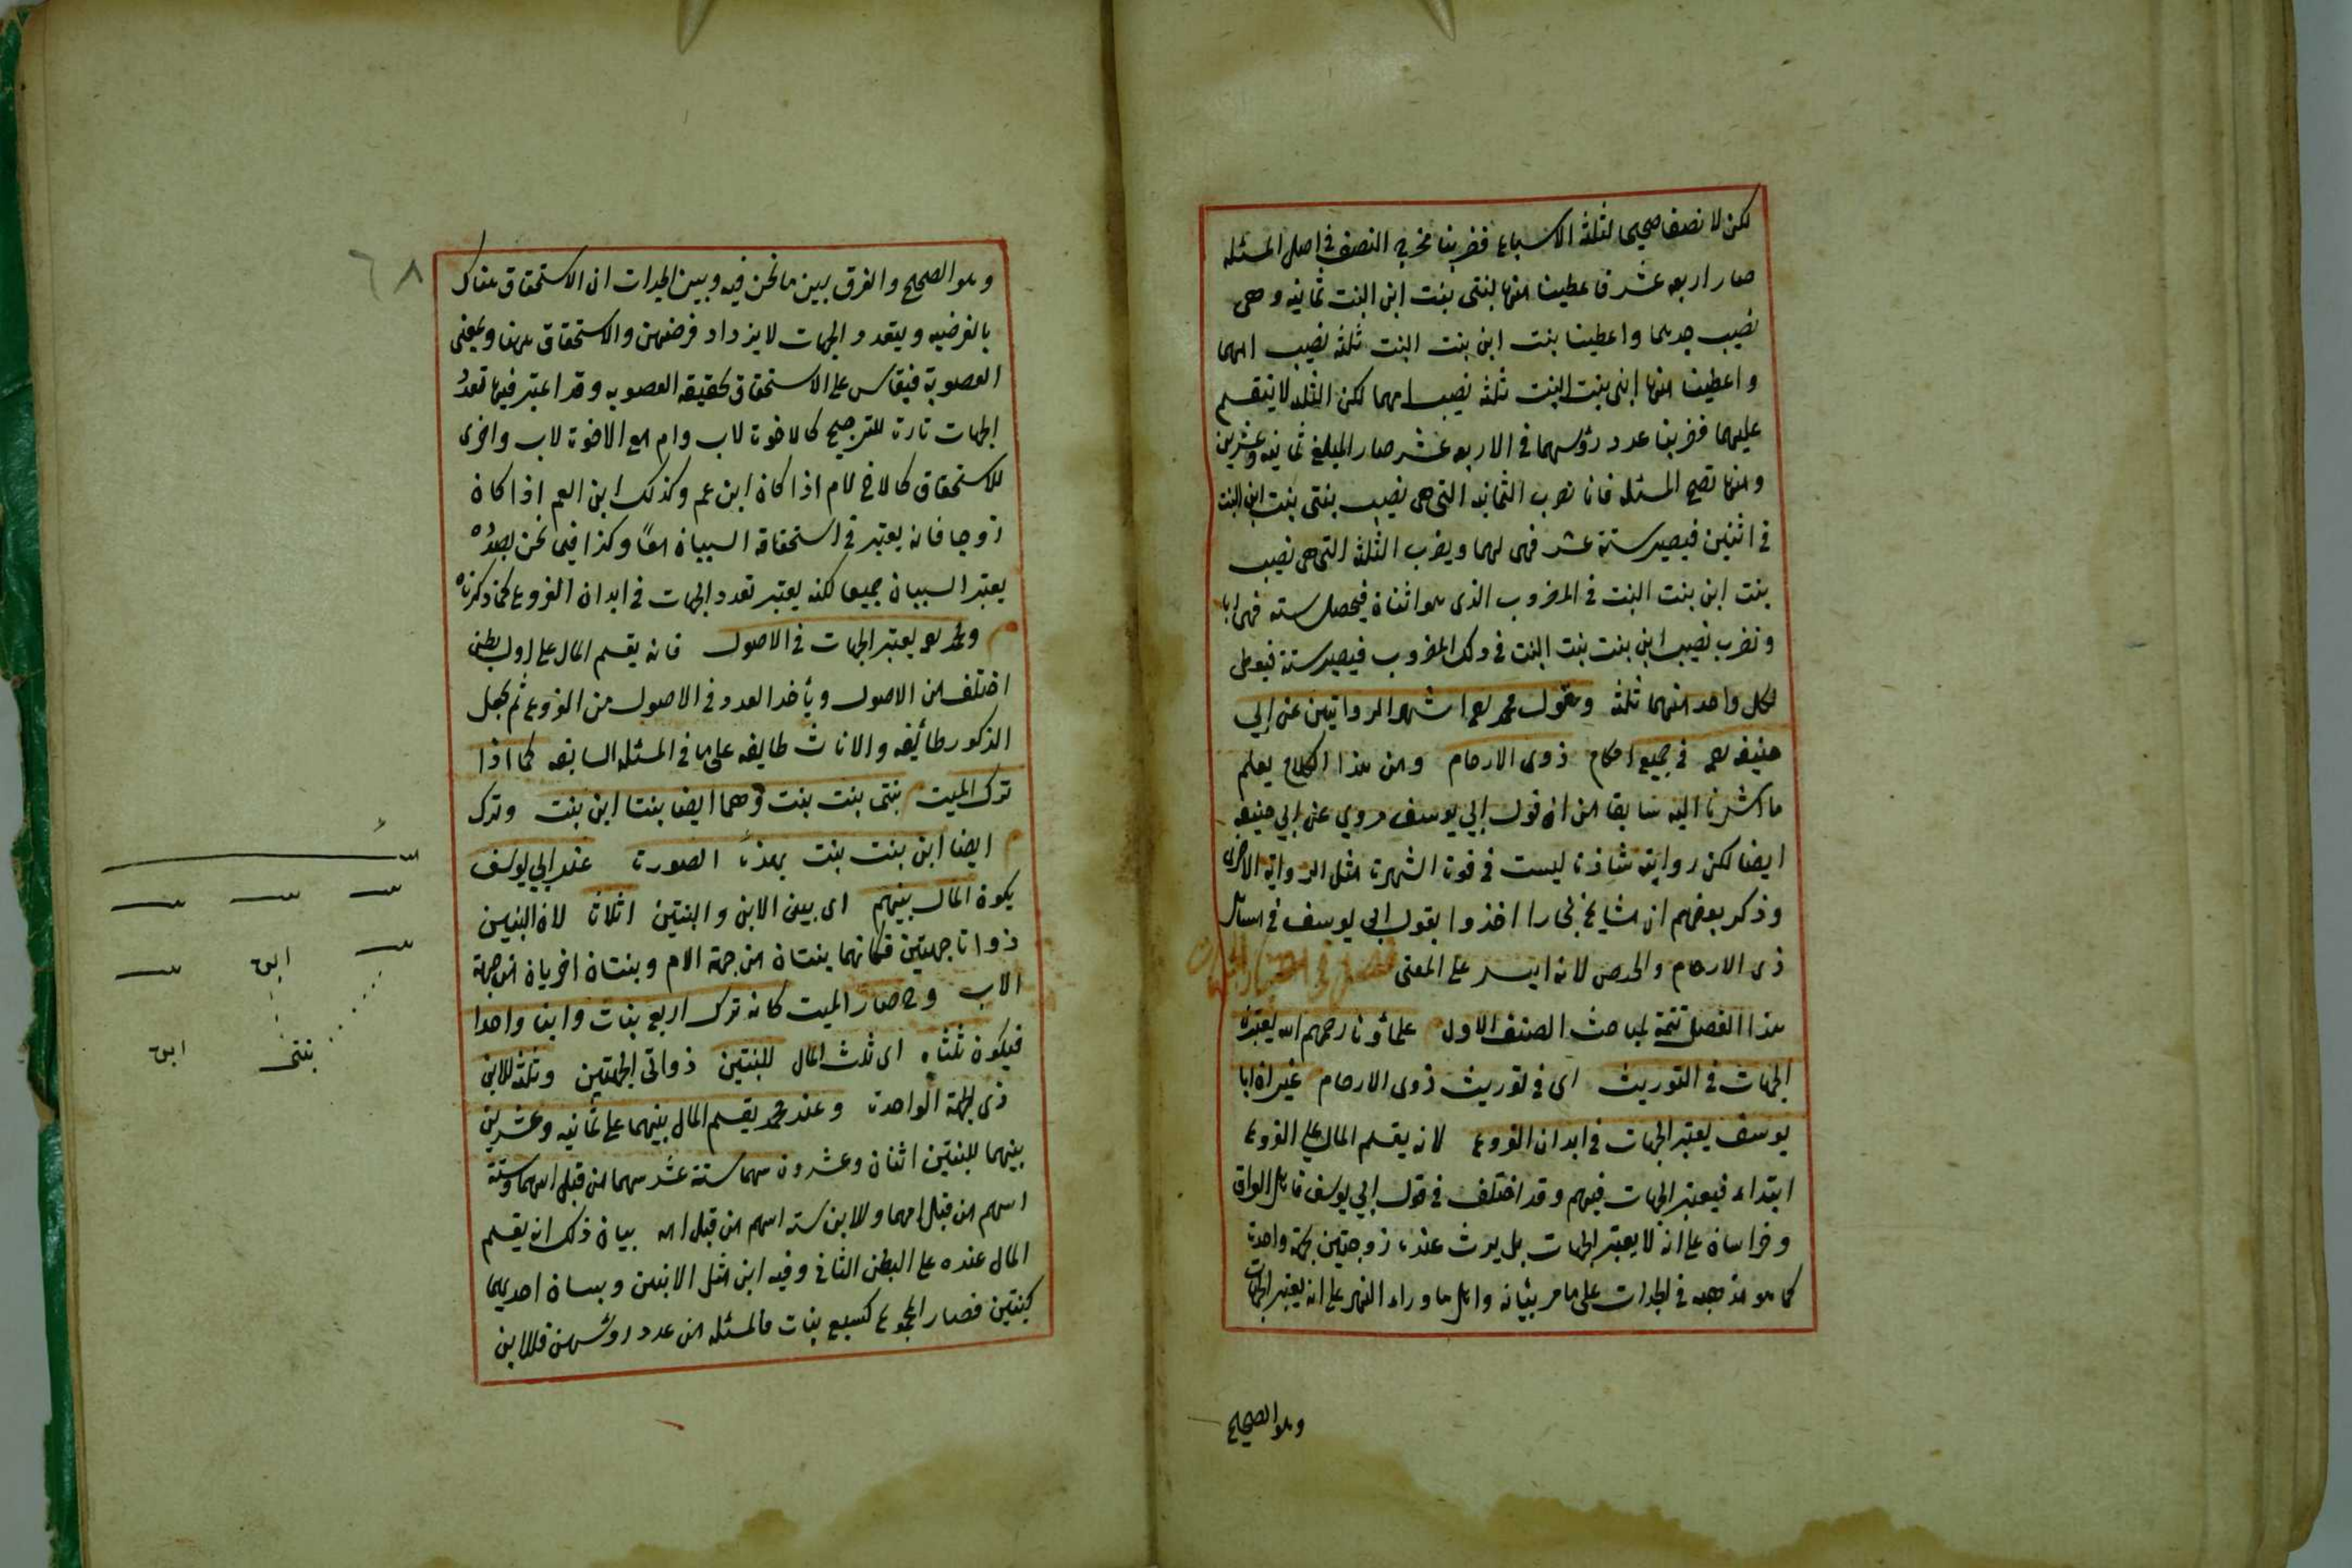 لكن لا نصف صحيحا لثلثة الاسباع فضربنا مخرج النصف في اصل المسئله
صار اربعه عشر فاعطينا منها لبنتى بنت ابن البنت ثمانيه وهى
نصيب جديهما واعطينا بنت ابن بنت البنت ثلثه نصيب امهما
واعطينا منها ابنى بنت البنت ثلثه نصيب امهما لكن الثلثه لا تنقسم
عليهما فضربنا عدد رؤسهما فى الاربعه عشر صار المبلغ ثمانيه وعشرين
ومنها تصح المسئله فانا نضرب الثمانيه التى هى نصيب بنتى بنت ابن البنت
فى اثنين فيصير ستة عشر فهى لهما ويضرب الثلثه التى هى نصيب
بنت ابن بنت البنت فى المضروب الذى هو اثنان فيحصل سته فهى لها
ونضرب نصيب ابن بنت بنت البنت فى ذلك المضروب فيصير ستة فيعطى
لكل واحد منهما ثلثه وقول محمد رحمه اشهر الروايتين عن ابى
حنيفه رحمه فى جميع احكام ذوى الارحام ومن هذا الكلام يعلم
ما اشرنا اليه سابقا من ان قول ابي يوسف مروي عن ابي حنيفه
ايضا لكن رواية شاذة ليست فى قوة الشهرة مثل الرواية الاخرى
وذكر بعضهم ان مشايخ بخارا اخذوا بقول ابى يوسف فى مسائل
ذوى الارحام والحيض لانه ايسر على المفتى فصل فى اعتبار الجهات
هذا الفصل تتمة لمباحث الصنف الاول علماؤنا رحمهم الله يعتبرون
الجهات فى التوريث اى فى توريث ذوى الارحام غير ان ابا
يوسف يعتبر الجهات فى ابدان الفروع لانه يقسم المال على الفروع
ابتداء فيعتبر الجهات فيهم وقد اختلف فى قول ابي يوسف فاهل العراق
وخراسان على انه لا يعتبر الجهات بل يرث عنده ذو جهتين بجهة واحدة
كما هو مذهبه فى الجدات على ما مر بيانه واهل ما وراء النهر على انه يعتبر الجهات
وهو الصحيح
٦٨
وهو الصحيح والفرق بين ما نحن فيه وبين الجدات ان الاستحقاق هناك
بالفرضيه وبتعدد الجهات لا يزداد فرضهن والاستحقاق ههنا بمعنى
العصوبة فيقاس على الاستحقاق بحقيقة العصوبه وقد اعتبر فيها تعدد
الجهات تارة للترجيح كالاخوة لاب وام مع الاخوة لاب واخرى
للاستحقاق كالاخ لام اذا كان ابن عم وكذلك ابن العم اذا كان
زوجا فانه يعتبر فى استحقاقه السببان معا وكذا فيما نحن بصدده
يعتبر السببان جميعا لكنه يعتبر تعدد الجهات فى ابدان الفروع كما ذكرناه
ومحمد رحمه يعتبر الجهات فى الاصول فانه يقسم المال على اول بطن
اختلف من الاصول ويأخذ العدد فى الاصول من الفروع ثم يجعل
الذكور طائفه والاناث طايفه على ما فى المسئله السابقه كما اذا
ترك الميت بنتى بنت بنت وهما ايضا بنتا ابن بنت وترك
ايضا ابن بنت بنت بهذه الصورة عند ابي يوسف
يكون المال بينهم اى بين الابن والبنتين اثلاثا لان البنتين
ذواتا جهتين فكانهما بنتان من جهة الام وبنتان اخريان من جهة
الاب وح صار الميت كانه ترك اربع بنات وابنا واحدا
فيكون ثلثاه اى ثلث المال للبنتين ذواتى الجهتين وثلثه للابن
ذى الجهة الواحدة وعند محمد يقسم المال بينهما على ثمانيه وعشرين
بينهما للبنتين اثنان وعشرون سهما ستة عشر سهما من قبل ابيهما وستة
اسهم من قبل امهما وللابن سته اسهم من قبل امه بيان ذلك انه يقسم
المال عنده على البطن الثانى وفيه ابن مثل الابنين وبنتان احديهما
كبنتين فصار المجموع كسبع بنات فالمسئله من عدد رؤسهن فللابن
ابن
بنتى ابن